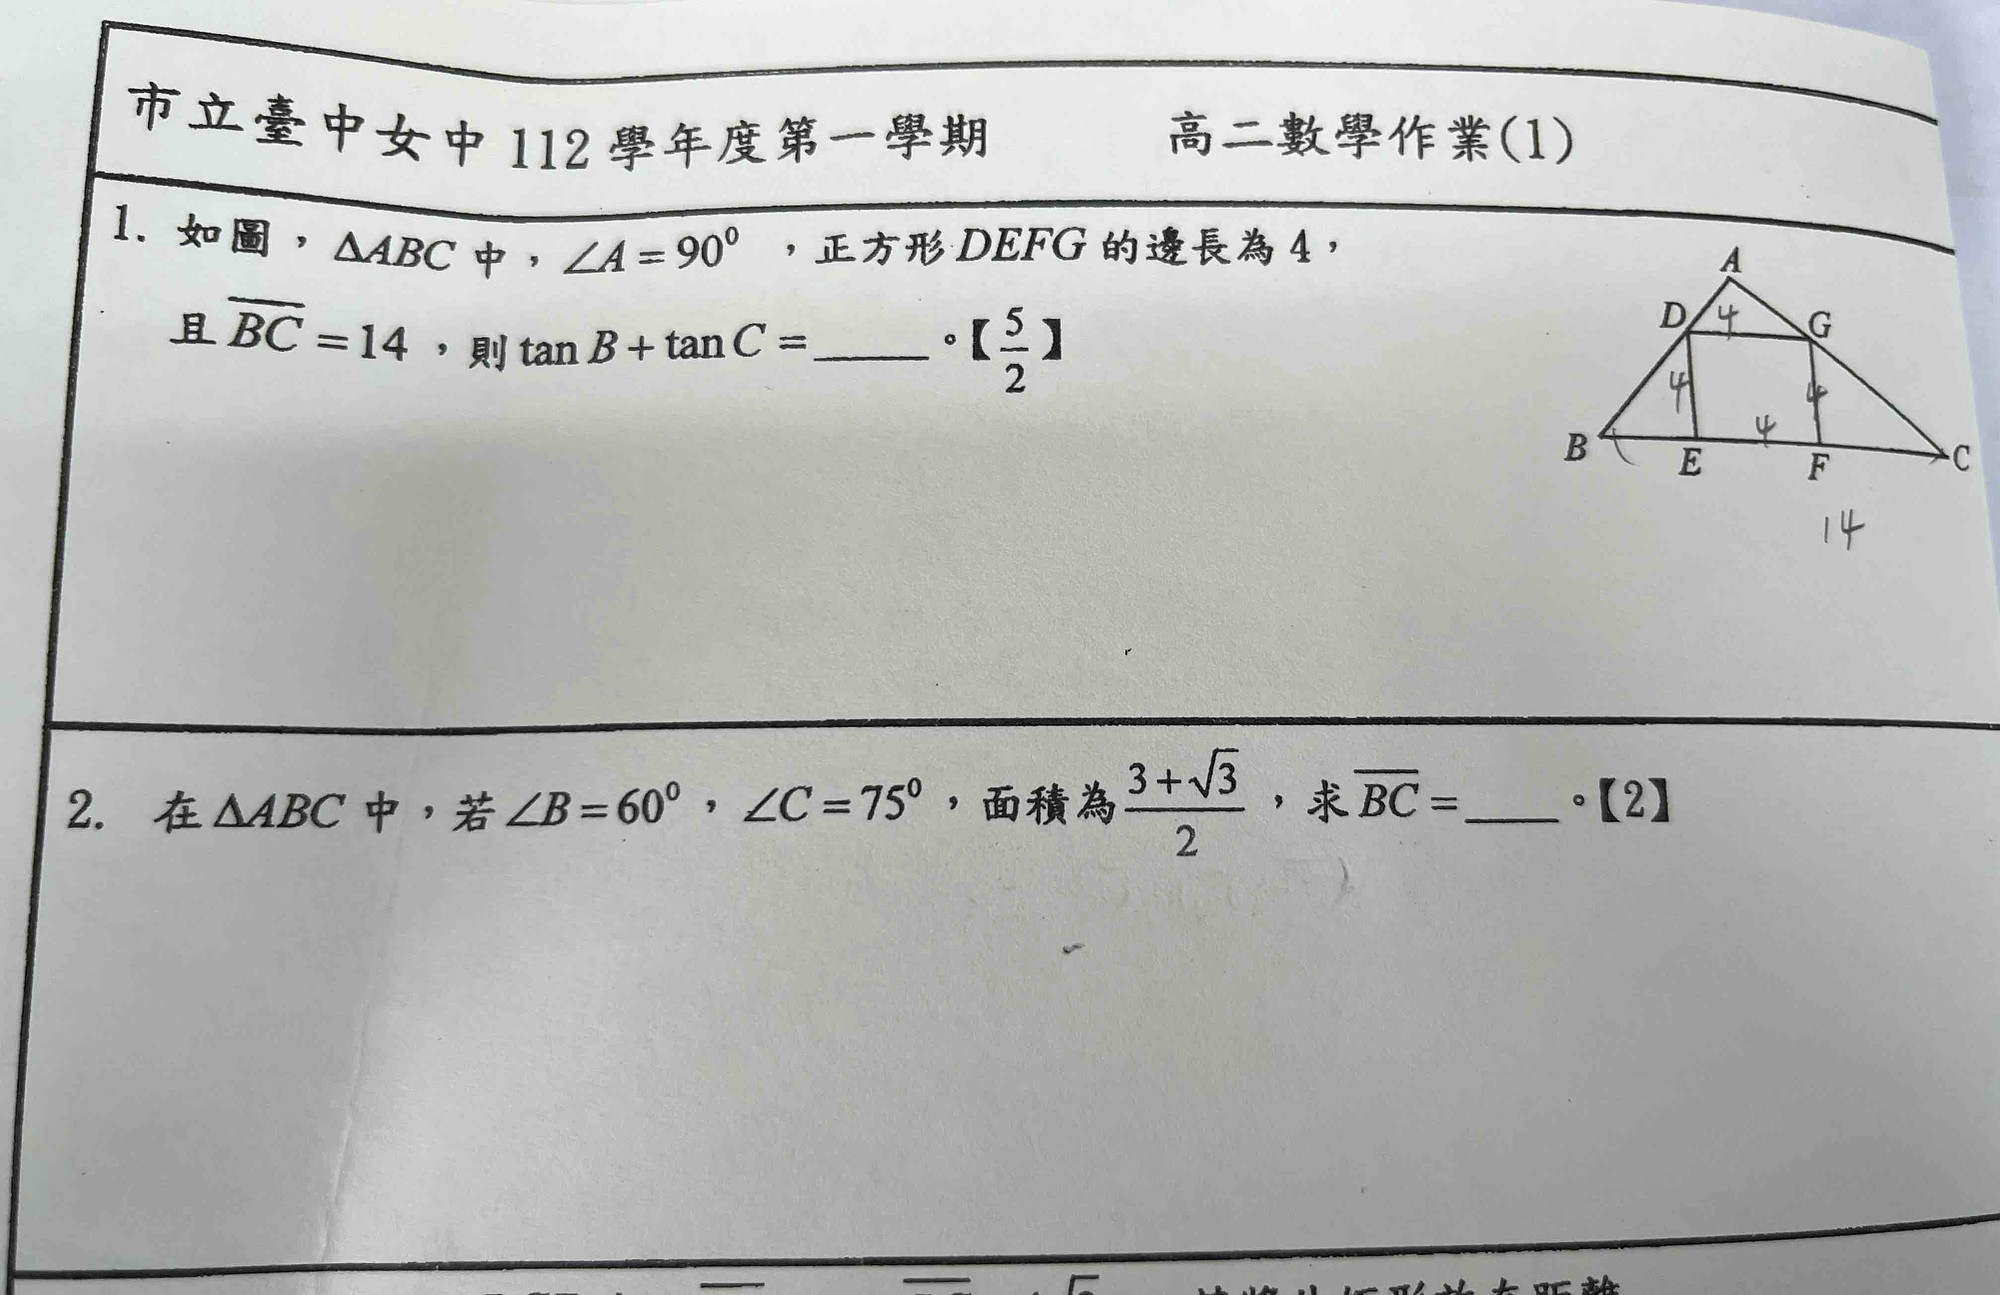 市立臺中女中 112 學年度第一學期 高二數學作業(1)
1. 如圖，ΔABC 中，∠A = 90⁰ ，正方形 DEFG 的邊長為 4，
且 \overline{BC} = 14 ，則 tan B + tan C = _____ 。【\frac{5}{2}】
A
D 4 G
4 4
4
B E F C
14
2. 在 ΔABC 中，若 ∠B = 60⁰ ，∠C = 75⁰ ，面積為 \frac{3+\sqrt{3}}{2} ，求 \overline{BC} = ____ 。【2】